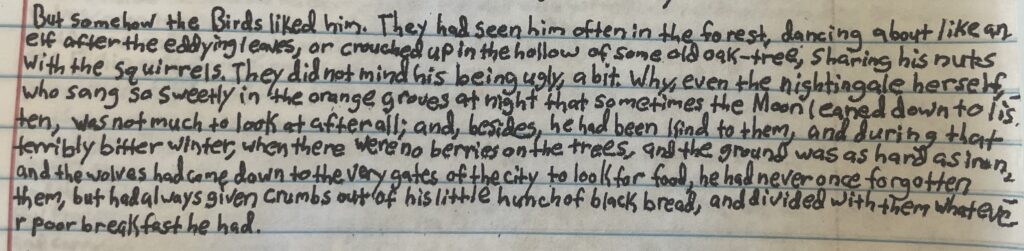 But somehow the Birds liked him. They had seen him often in the forest, dancing about like an
elf after the eddying leaves, or crouched up in the hollow of some old oak-tree, sharing his nuts
with the squirrels. They did not mind his being ugly, a bit. Why, even the nightingale herself,
who sang so sweetly in the orange groves at night that sometimes the Moon leaned down to lis-
ten, was not much to look at after all; and, besides, he had been kind to them, and during that
terribly bitter winter, when there were no berries on the trees, and the ground was as hard as iron,
and the wolves had come down to the very gates of the city to look for food, he had never once forgotten
them, but had always given crumbs out of his little hunch of black bread, and divided with them whateve-
r poor breakfast he had.